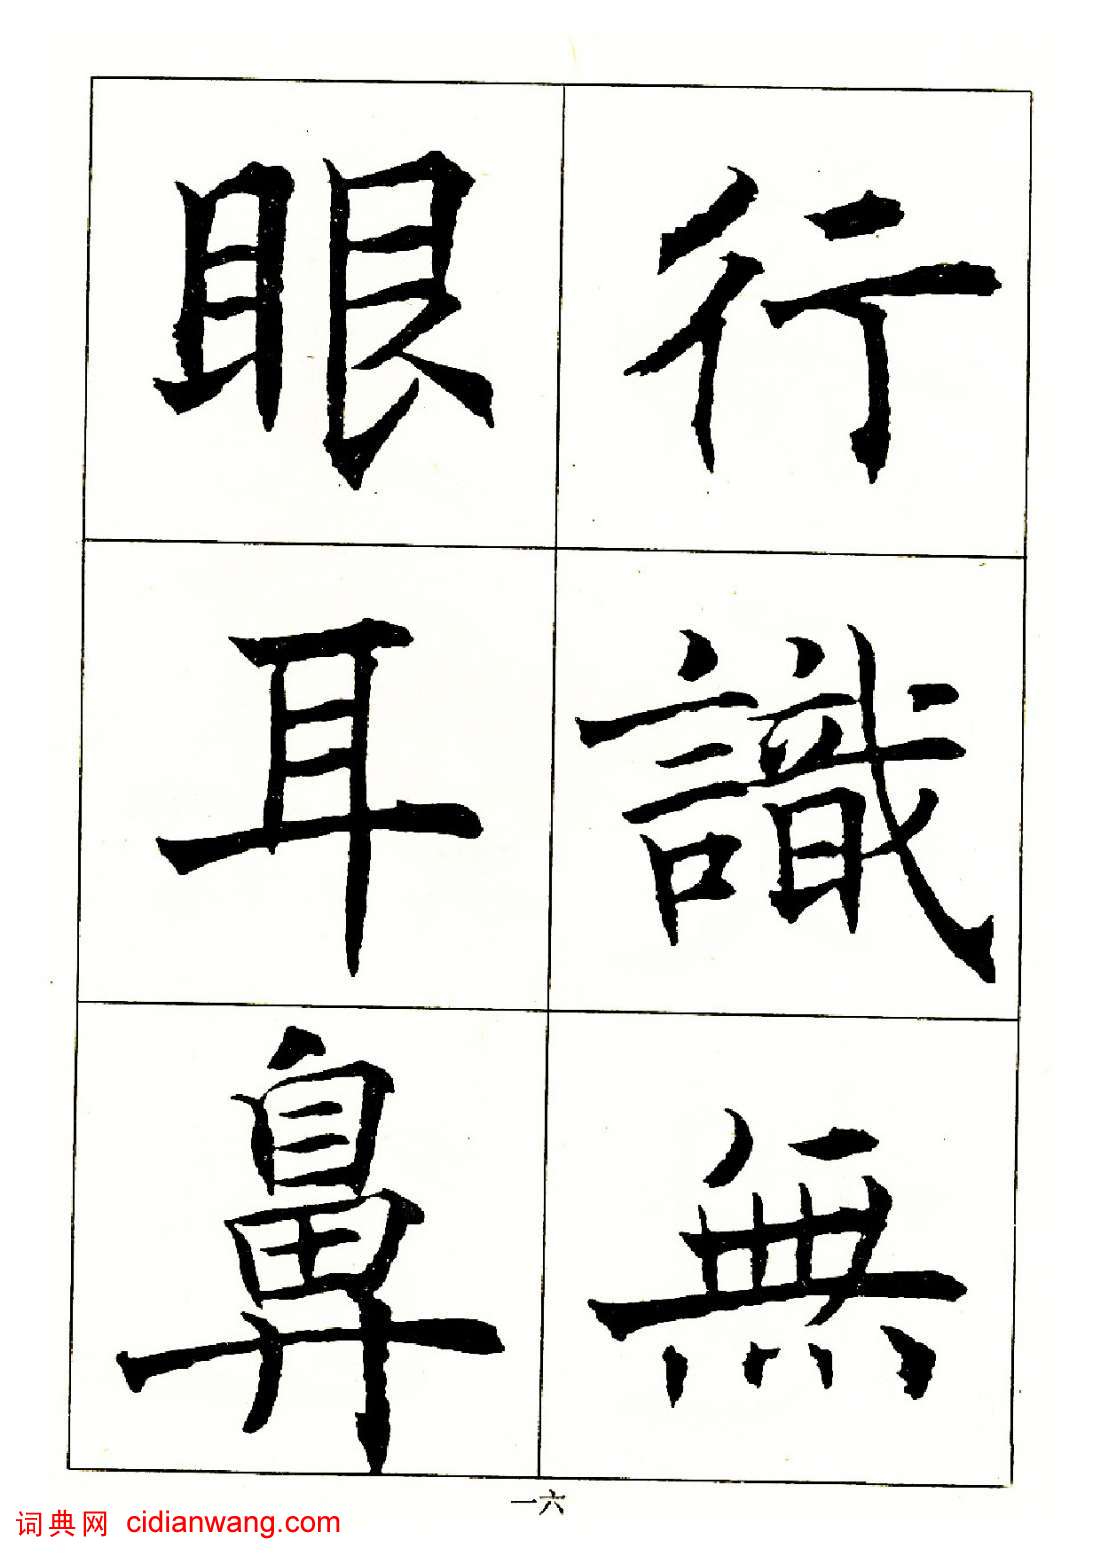 行識無
眼耳鼻
一六
词典网 cidianwang.com